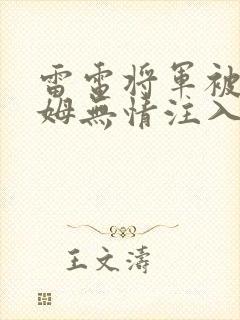 雷電将軍被
姆無情注入
王文濤